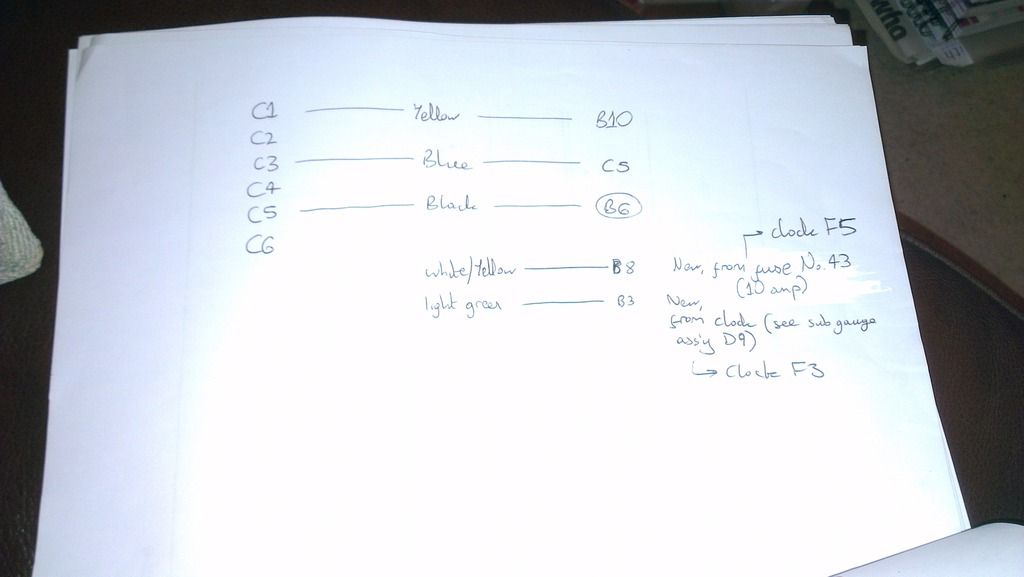 who
C1 Yellow B10
C2
C3 Blue C5
C4
C5 Black B6
C6
clock F5
white/Yellow B8 New, from fuse No. 43
(10 amp)
light green B3 New,
from clock (see sub gauge
ass'y D9)
Clock F3